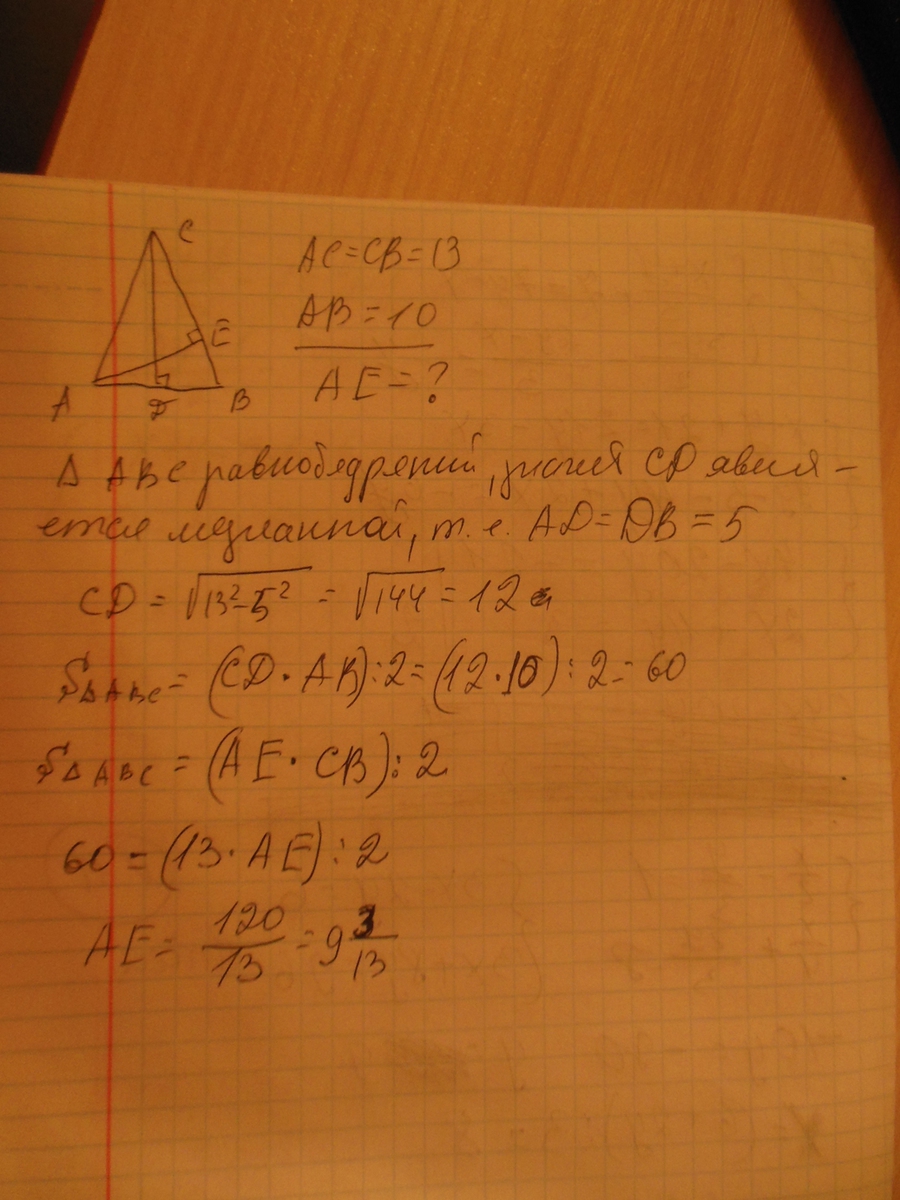 C
AC=CB=13
AB=10
E
AE=?
A
D
B
Δ ABC равнобедрений, значит CD явля-
ется медианной, т. е. AD=DB=5
CD = √13²-5² = √144 = 12
SΔABC = (CD·AB):2=(12·10):2=60
SΔABC = (AE·CB):2
60=(13·AE):2
AE= 120/13 = 9 3/13